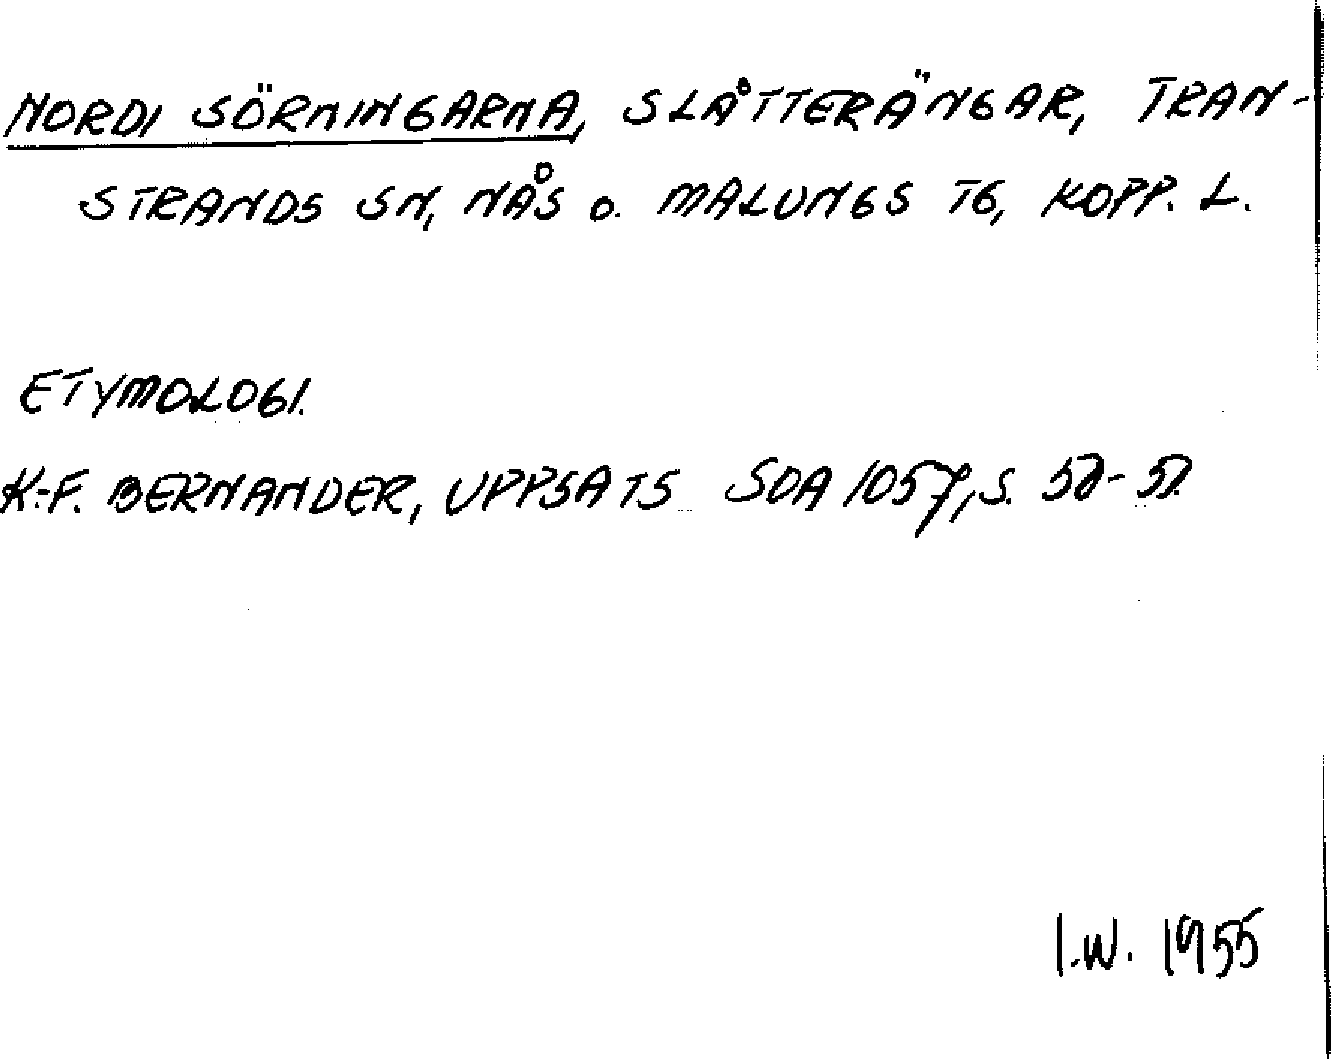 NORDI SÖRNINGARNA, SLÅTTERÄNGAR, TRAN-
STRANDS SN, NÅS O. MALUNGS TG, KOPP. L.
ETYMOLOGI.
K.-F. BERNANDER, UPPSATS SOA 1057, S.
I.W. 1955